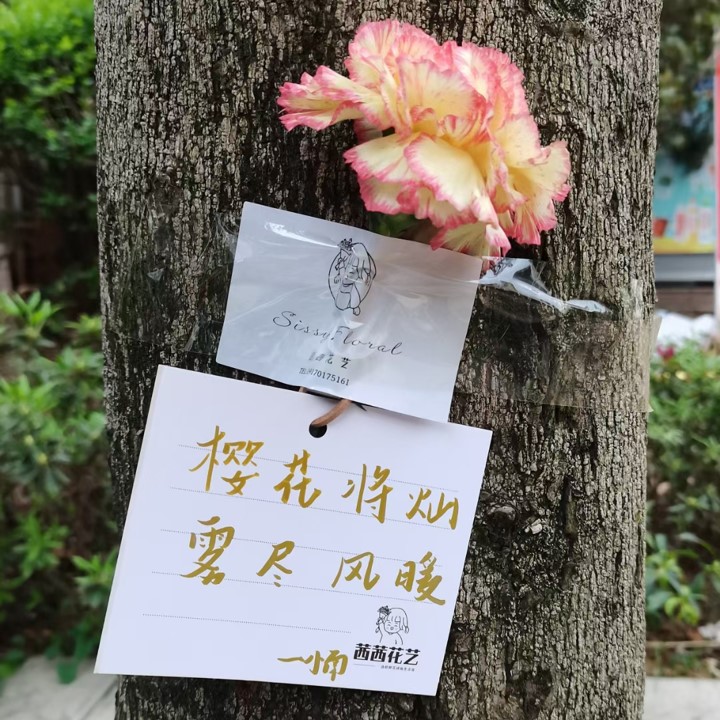 Sissy Floral
花艺
70175161
樱花将灿
雾尽风暖
茜茜花艺